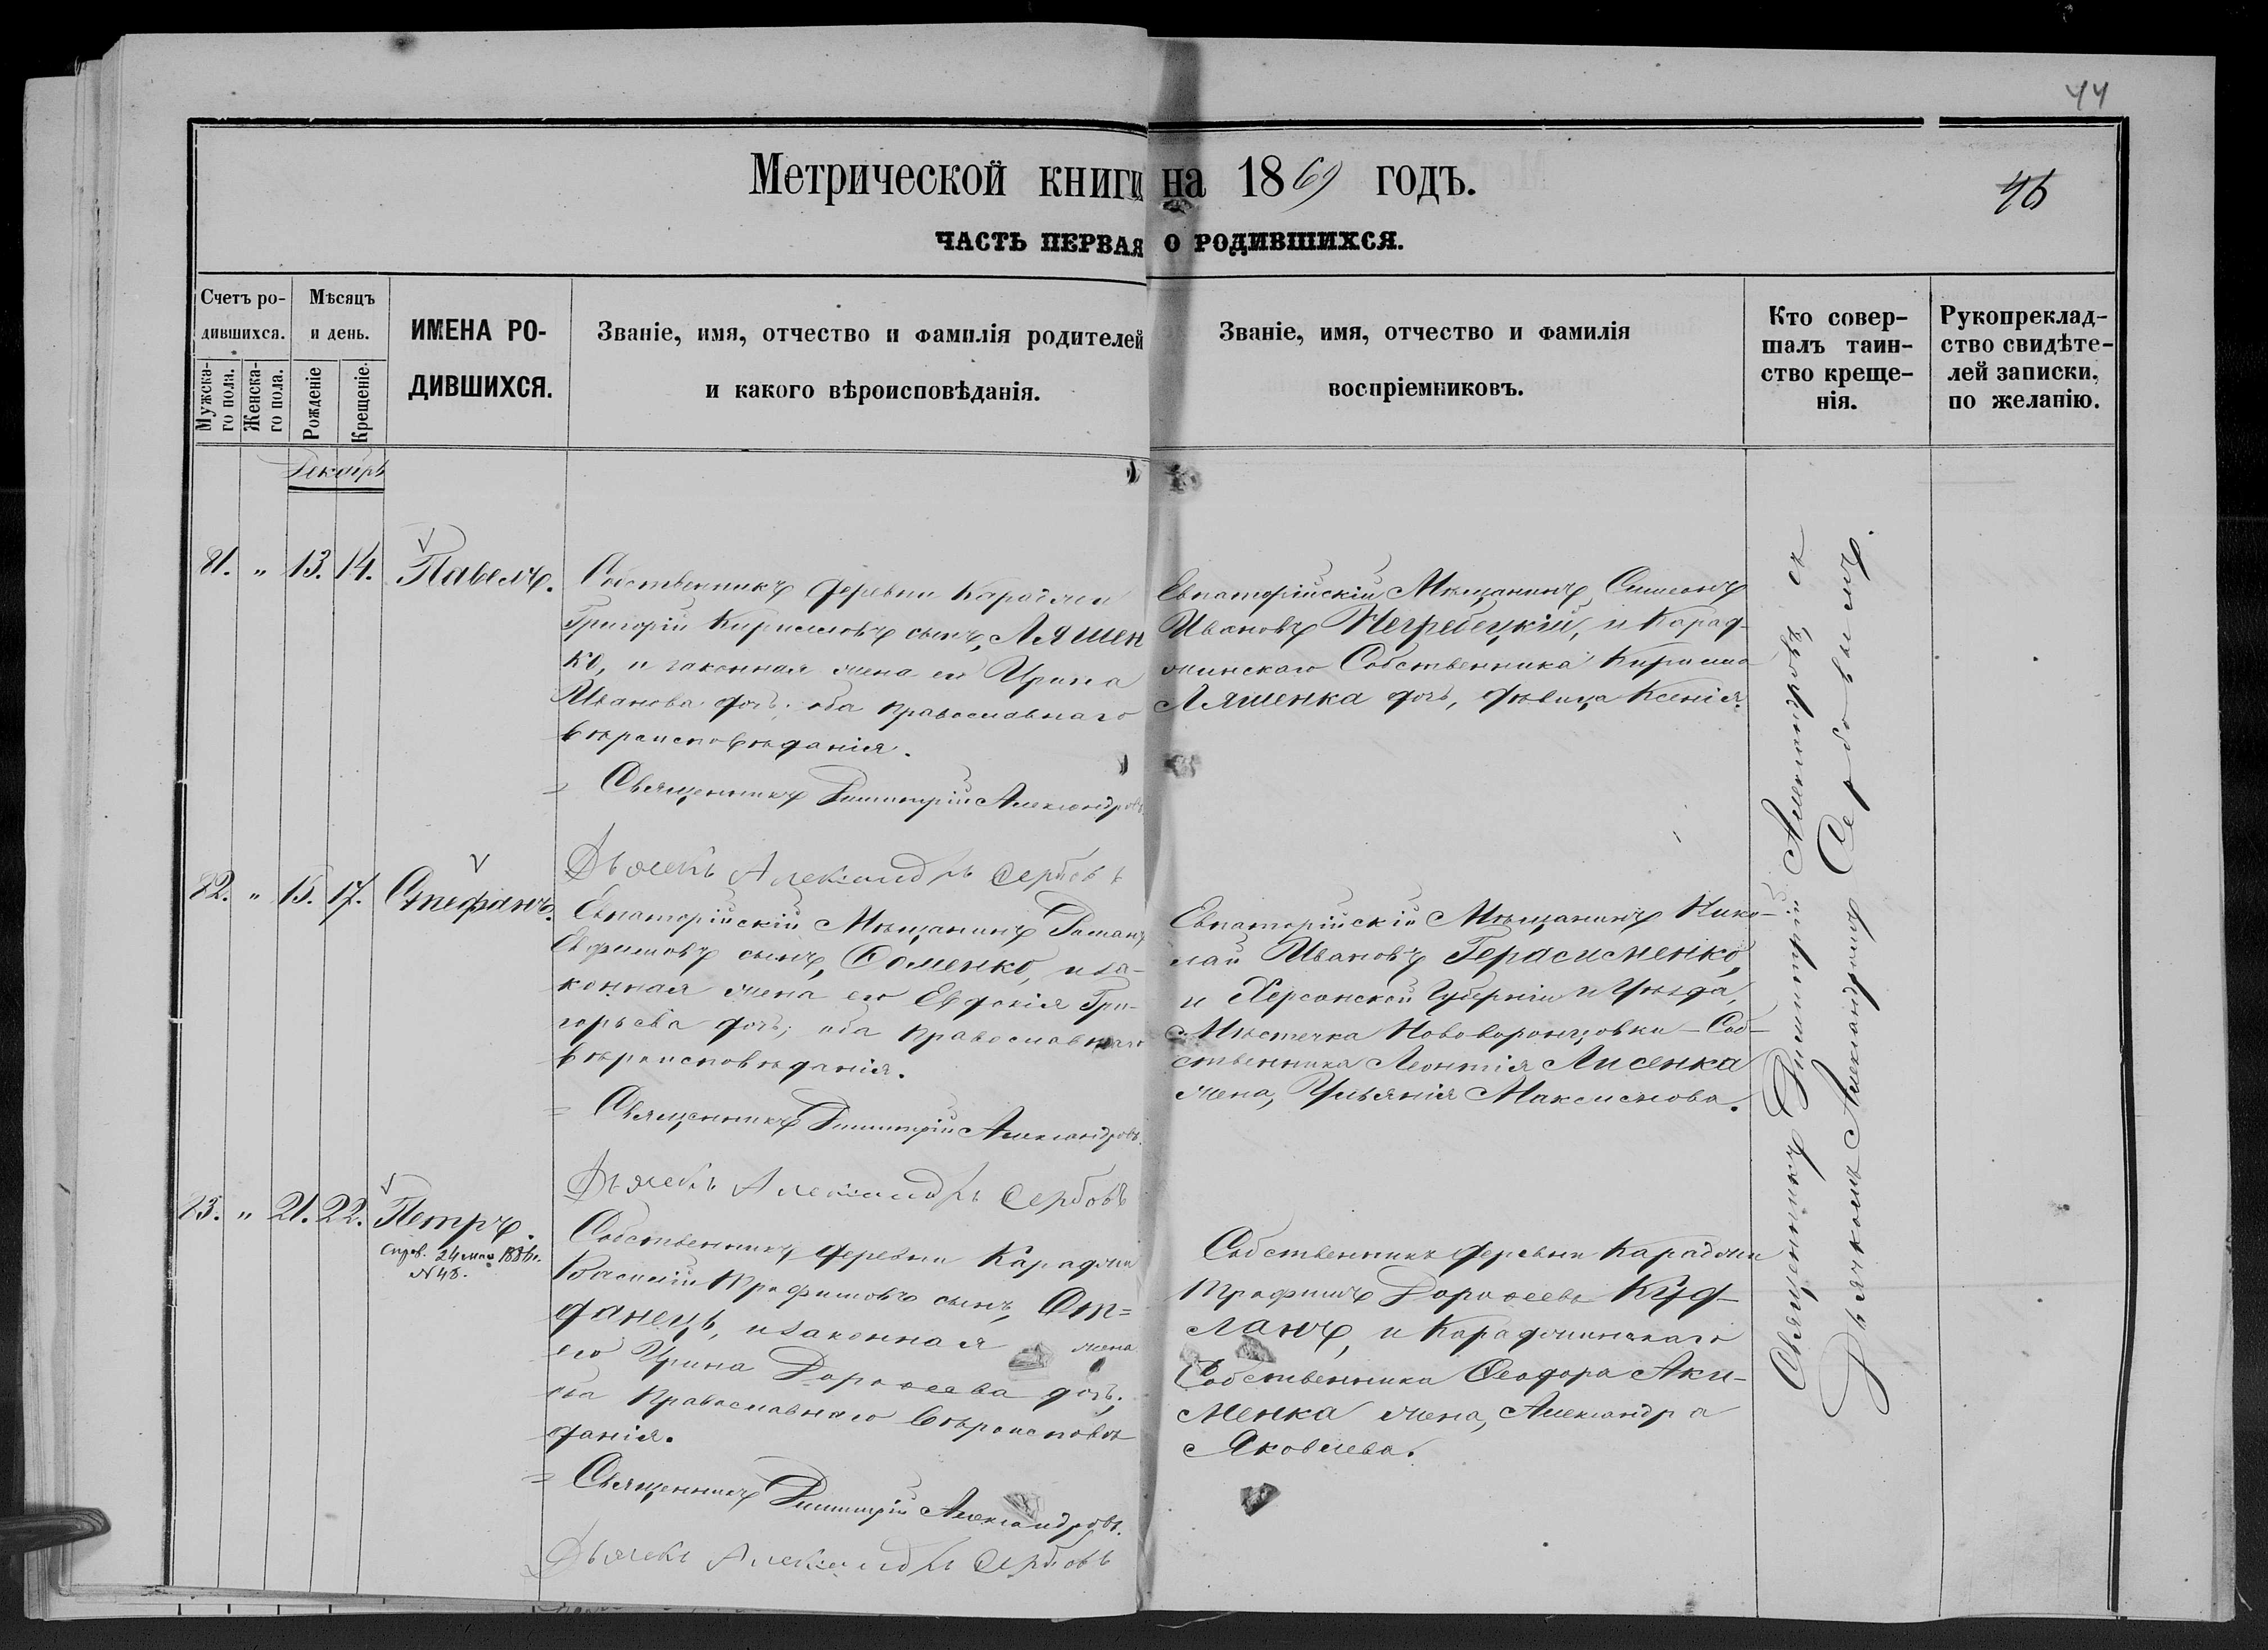 44
Метрической книги на 1869 годъ.
46
ЧАСТЬ ПЕРВАЯ О РОДИВШИХСЯ.
Счетъ ро-
дившихся.
Мужска-
го пола.
Женска-
го пола.
Мѣсяцъ
и день.
Рожденіе
Крещеніе.
ИМЕНА РО-
ДИВШИХСЯ.
Званіе, имя, отчество и фамилія родителей
и какого вѣроисповѣданія.
Званіе, имя, отчество и фамилія
воспріемниковъ.
Кто совер-
шалъ таин-
ство креще-
нія.
Рукопреклад-
ство свидѣте-
лей записки,
по желанію.
Декабрь
81. " 13. 14. Павелъ.
Собственникъ деревни Караджи
Григорій Кирилловъ сынъ, Ляшен
ко, и законная жена его Ирина
Иванова дочь; оба православнаго
вѣроисповѣданія.
Священникъ Димитрій Александровъ
Дьячекъ Александръ Сербовъ
Евпаторійскій Мѣщанинъ Симеонъ
Ивановъ Негребецкій, и Карад-
жинскаго Собственника Кирилла
Ляшенка дочь, дѣвица Ксенія.
82. " 15. 17. Стефанъ.
Евпаторійскій Мѣщанинъ Романъ
Ефимовъ сынъ, Соменко, и за-
конная жена его Евдокія Гри-
горьева дочь; оба православнаго
вѣроисповѣданія.
Священникъ Димитрій Александровъ.
Дьячекъ Александръ Сербовъ
Евпаторійскій Мѣщанинъ Нико-
лай Ивановъ Герасименко,
и Херсонской Губерніи и Уѣзда,
Мѣстечка Нововоронцовки - Соб-
ственника Леонтія Лисенка
жена, Ульянія Максимова.
83. " 21. 22. Петръ.
Справ. 24 мая 1886 г.
N 48.
Собственникъ деревни Караджи
Василій Трофимовъ сынъ, От=
данецъ, и законная жена
его Ирина Дорофеева дочь;
оба Православнаго вѣроисповѣ-
данія.
Священникъ Димитрій Александровъ.
Дьячекъ Александръ Сербовъ
Собственникъ деревни Караджи
Трофимъ Дорофеевъ Куд-
ланъ, и Караджинскаго
Собственника Феодора Аки-
менка жена, Александра
Яковлева.
Священникъ Димитрій Александровъ, съ
Дьячкомъ Александромъ Сербовымъ.